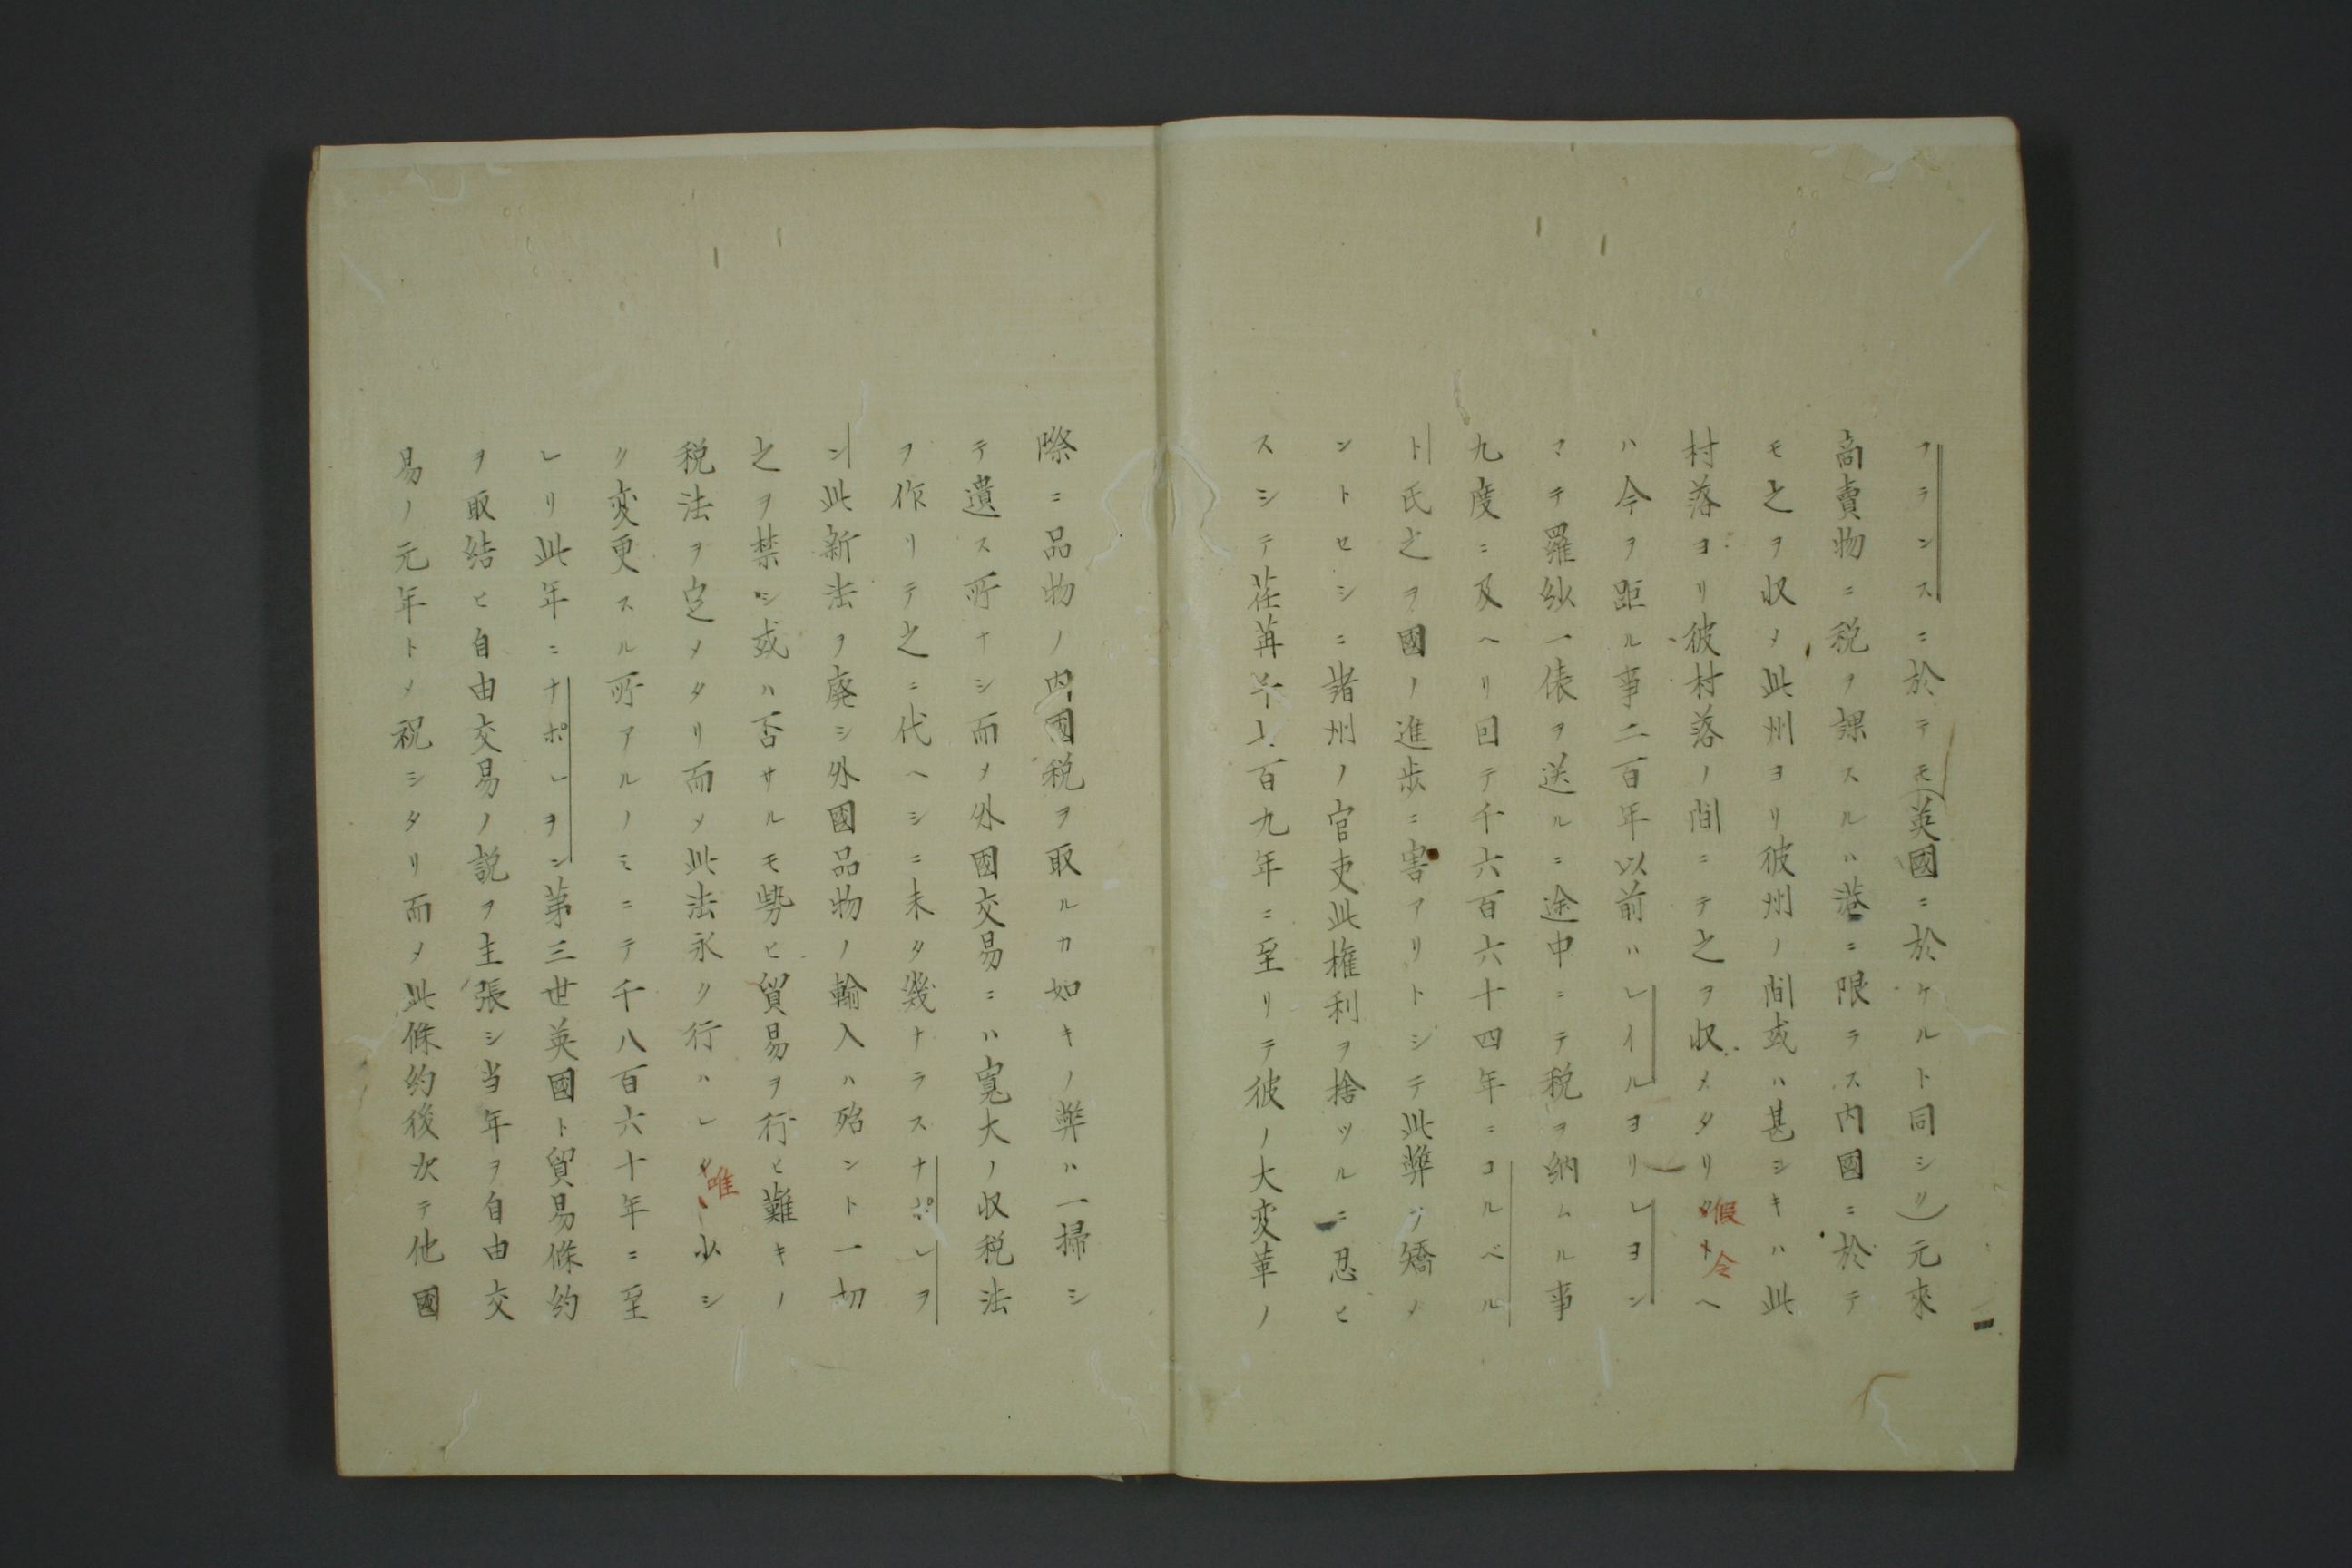 フランスニ於テモ(英國ニ於ケルト同シリ)元來
商賣物ニ税ヲ課スルハ港ニ限ラス内國ニ於テ
モ之ヲ収メ此州ヨリ彼州ノ間或ハ甚シキハ此
村落ヨリ彼村落ノ間ニテ之ヲ収メタリ假令ヘ
ハ今ヲ距ル事二百年以前ハレイルヨリレヨン
マテ羅紗一俵ヲ送ルニ途中ニテ税ヲ納ムル事
九度ニ及ヘリ回テ千六百六十四年ニコルベル
ト氏之ヲ國ノ進歩ニ害アリトシテ此弊ヲ矯メ
ントセシニ諸州ノ官吏此権利ヲ捨ツルニ忍ヒ
スシテ荏苒百九年ニ至リテ彼ノ大変革ノ
際ニ品物ノ内國税ヲ取ルカ如キノ弊ハ一掃シ
テ遺ス所ナシ而メ外國交易ニハ寛大ノ収税法
ヲ作リテ之ニ代ヘシニ未タ幾ナラスナポレヲ
ン此新法ヲ廃シ外國品物ノ輸入ハ殆ント一切
之ヲ禁シ或ハ否サルモ勢ヒ貿易ヲ行ヒ難キノ
税法ヲ定メタリ而メ此法永ク行ハレ唯少シ
ク変更スル所アルノミニテ千八百六十年ニ至
レリ此年ニナポレヲン第三世英國ト貿易條約
ヲ取結ヒ自由交易ノ説ヲ主張シ当年ヲ自由交
易ノ元年トメ祝シタリ而メ此條約後次テ他國